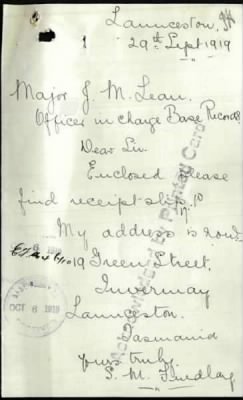 Launceston,
29th Sept 1919
Major J. M. Lean.
Officer in charge Base Records
Dear Sir
Enclosed please
find receipt slip.
My address is now
19 Green Street,
Invermay
Launceston.
Tasmania
Yours truly.
S. M. Findlay
Acknowledged By Printed Card
OCT 6 1919